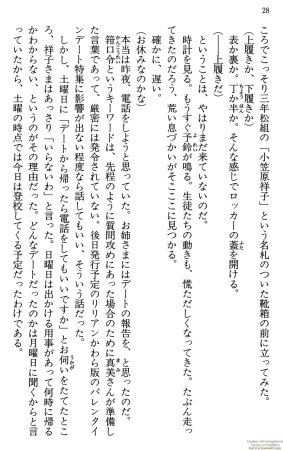 28
ころでこっそり三年松組の「小笠原祥子」という名札のついた靴箱の前に立ってみた。
(上履きか、下履きか)
表か裏か。丁か半か。そんな感じでロッカーの蓋を開ける。
(――上履きだ)
ということは、やはりまだ来ていないのだ。
時計を見る。もうすぐ予鈴が鳴る。生徒たちの動きも、慌ただしくなってきた。たぶん走っ
てきたのだろう、荒い息づかいがそこここに見つかる。
確かに、遅い。
(お休みなのかな)
本当は昨夜、電話をしようと思っていた。お姉さまにはデートの報告を、と思ったのだ。
箝口令というキーワードは、先程のように質問攻めにあった場合のために真美さんが準備し
た言葉であって、厳密には発令されていない。後日発行予定のリリアンかわら版のバレンタイ
ンデート特集に影響が出ない程度なら話してもいい、そういう話だった。
しかし、土曜日に「デートから帰ったら電話をしてもいいですか」とお伺いをたてたとこ
ろ、祥子さまはあっさり「いらないわ」と言った。日曜日は出かける用事があって何時に帰る
かわからない、というのがその理由だった。どんなデートだったのかは月曜日に聞くからと言
っていたから、土曜の時点では今日は登校してくる予定だったわけである。